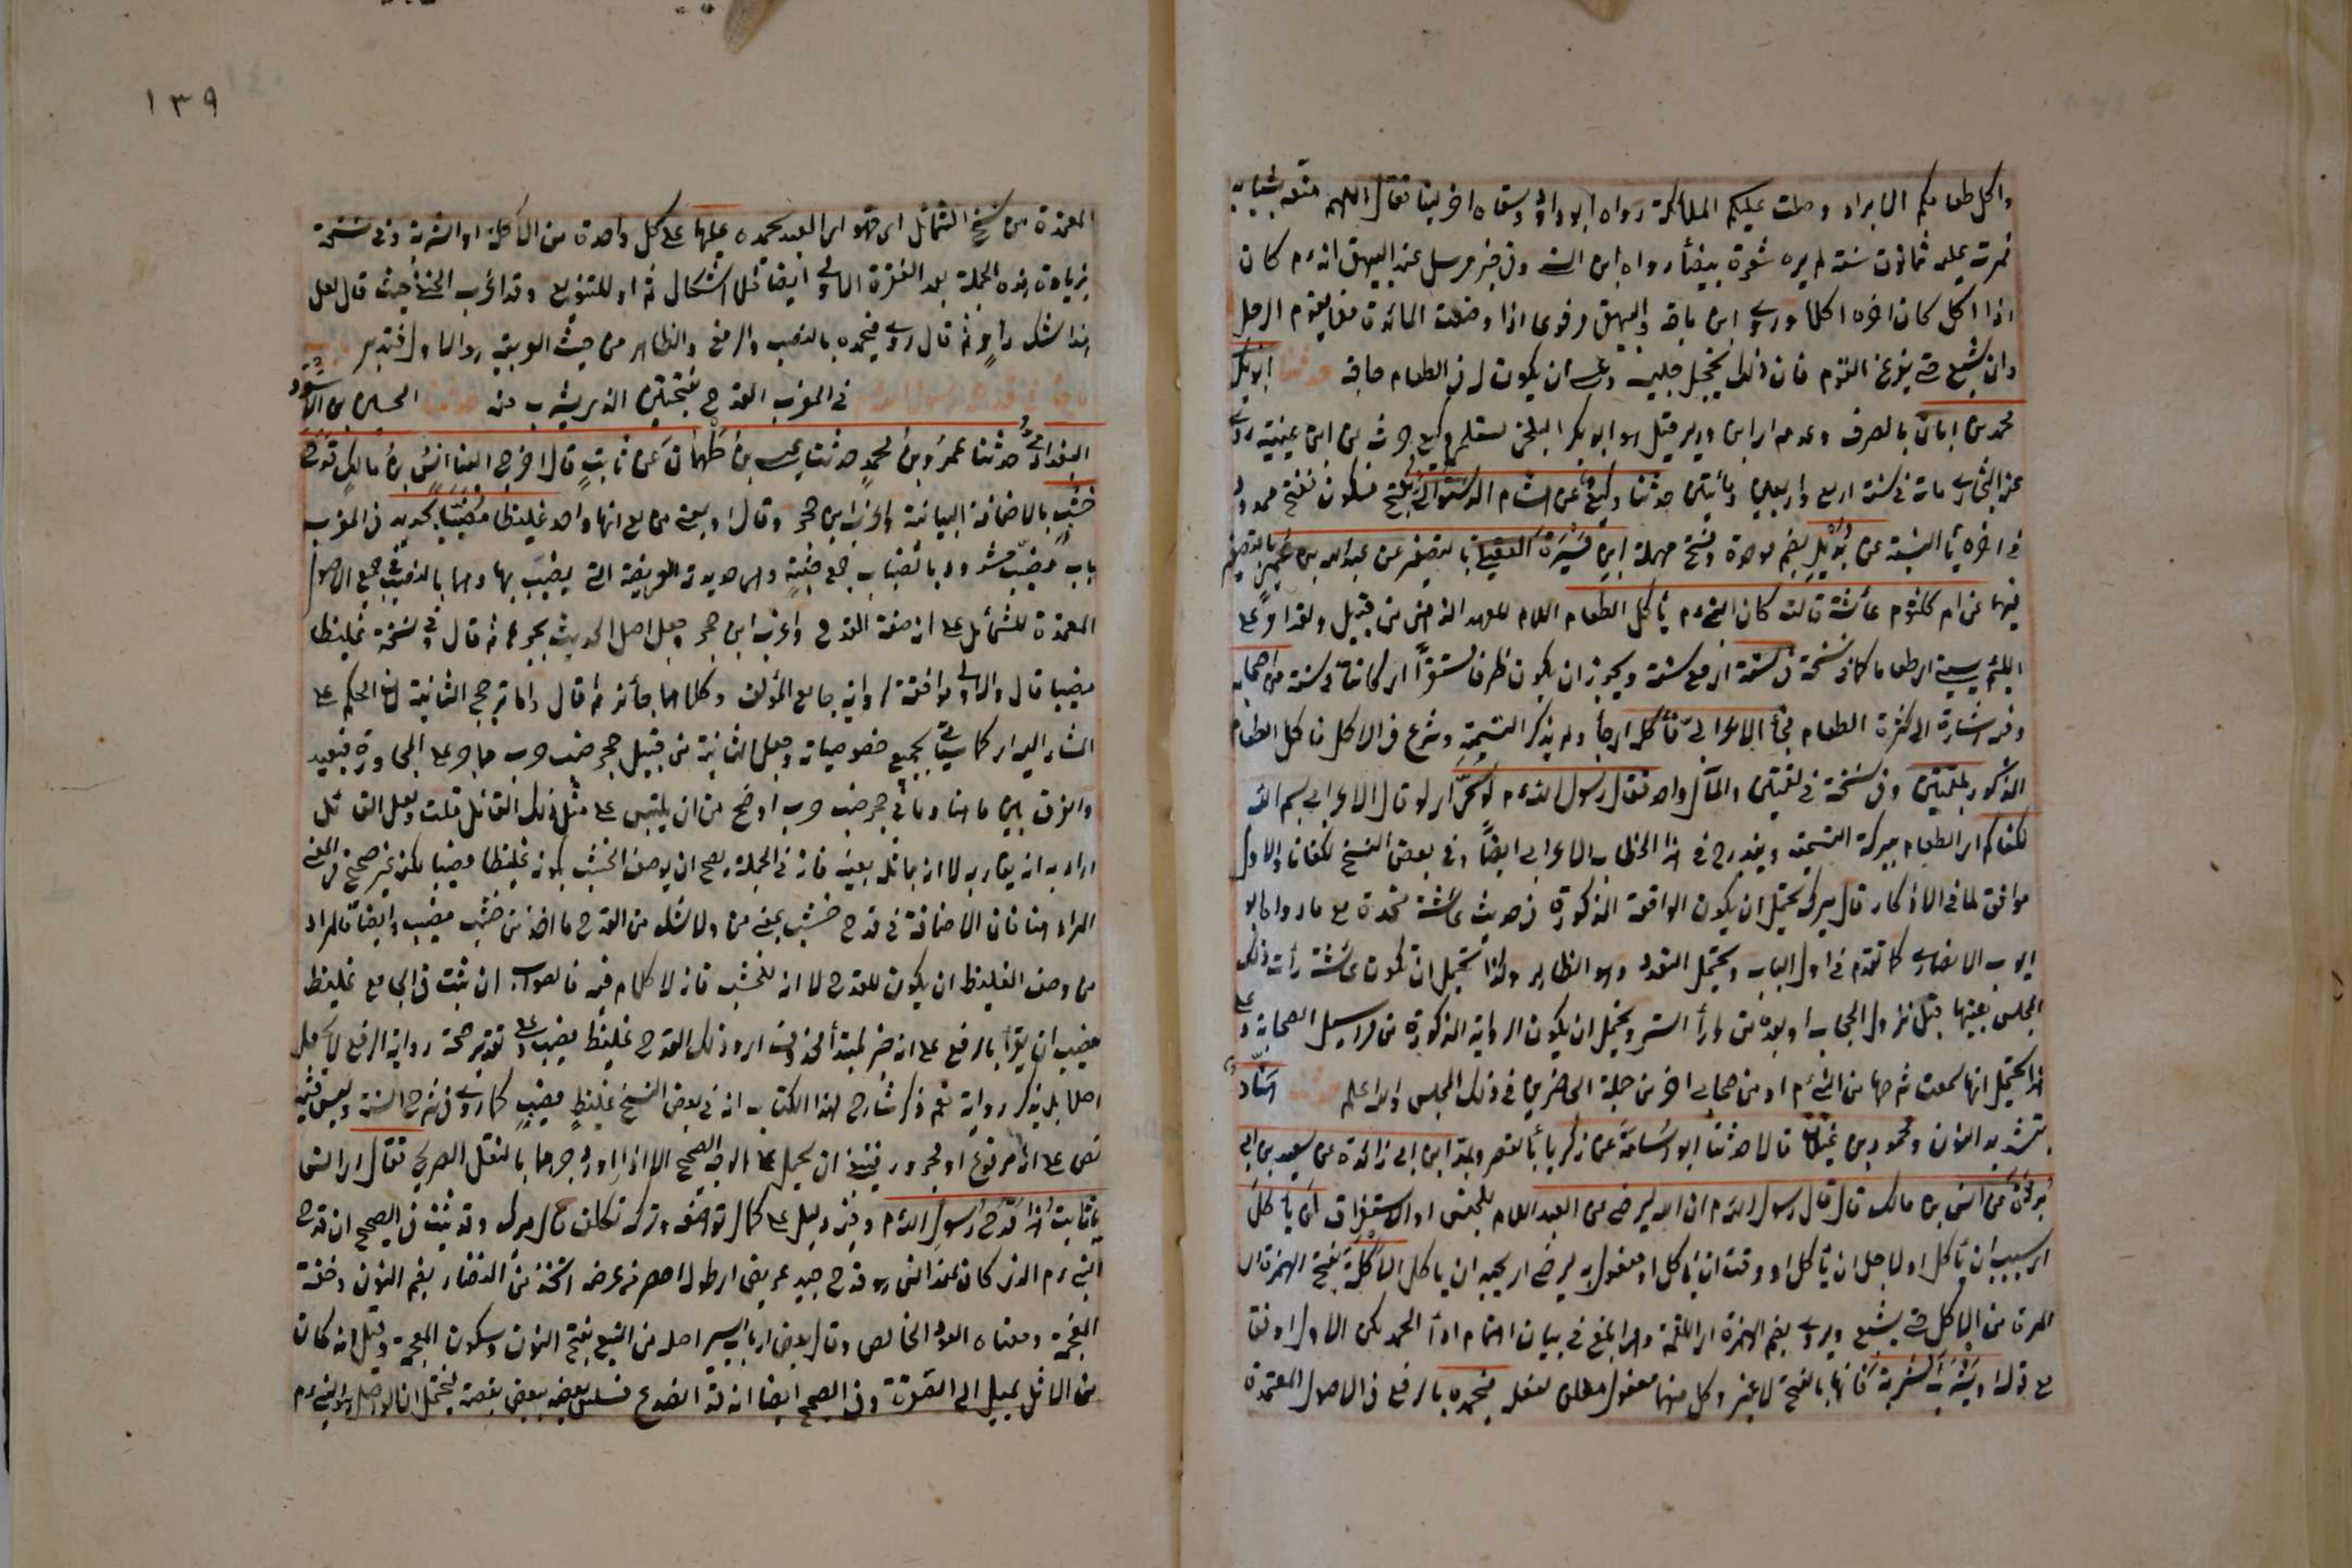 واكل طعامكم الابرار وصلت عليكم الملائكة رواه ابوداود وسقاه اخر لبنا فقال اللهم متعه بشبابه
فمرت عليه ثمانون سنة لم يره شعرة بيضاء رواه ابن السني وفي خبر مرسل عند البيهقي انه ءم كان
اذا اكل كان اخرهم اكلا وروى ابن ماجه والبيهقي مرفوعا اذا وضعت المائدة فلا يقوم الرجل
وان شبع حتى يفرغ القوم فان ذلك يخجل جليسه وعسى ان يكون له في الطعام حاجة حدثنا ابو بكر
محمد بن ابان بالصرف وعدمه ابن وزير قيل هو ابو بكر البلخي مستملي وكيع حدث عن ابن عيينة روى
عنه البخاري مات في سنة اربع واربعين ومأتين حدثنا وكيع عن هشام الدستوائي بفتح فسكون ففتح ممدود
في اخره يا النسبة عن بديل بضم موحدة وفتح مهملة ابن ميسرة العقيلي بالتصغير عن عبدالله بن عبيد بن عمير بالتصغير
فيهما عن ام كلثوم عائشة قالت كان النبي ءم يأكل الطعام اللام للعهد الذهني من قبيل ولقد امر على
اللئيم يسبني اي طعاما كما في نسخة في ستة اي مع ستة ويجوز ان يكون ظرفا مستقرا اي كائنا في ستة من اصحابه
وفيه اشارة الى كثرة الطعام فجأ الاعرابي فأكله اي جأ ولم يذكر التسمية وشرع في الاكل فاكل الطعام
المذكور بلقمتين وفي نسخة في لقمتين والمآل واحد فقال رسول الله ءم لو سمى اي لو قال الاعرابي بسم الله
لكفاكم اي الطعام ببركة التسمية ويندرج في هذا الخطاب الاعرابي ايضا وفي بعض النسخ لكفانا والاول
موافق لما في الاذكار قال ميرك يحتمل ان يكون الواقعة المذكورة في حديث عائشة متحدة مع ما رواه ابو
ايوب الانصاري كما تقدم في اول الباب ويحتمل التعدد وهو الظاهر وكذا يحتمل ان تكون عائشة رأت ذلك
المجلس بعينها قبل نزول الحجاب او بعده من ورأ الستر ويحتمل ان يكون الرواية المذكورة من مراسيل الصحابة وعلى
هذا يحتمل انها سمعت شرحها من النبي ءم او من صحابي اخر من جملة الحاضرين في ذلك المجلس والله اعلم حدثنا هناد
بتشديد النون ومحمود بن غيلان قالا حدثنا ابو اسامة عن زكريا بالقصر ويمد ابن ابي زائدة عن سعيد بن ابي
بردة عن انس بن مالك قال قال رسول الله ءم ان الله ليرضى عن العبد اللام للجنس او الاستغراق ان يأكل
اي بسبب ان يأكل او لاجل ان يأكل او وقت ان يأكل او مفعول به ليرضى اي يحب ان يأكل الأكلة بفتح الهمزة اي
المرة من الاكل حتى يشبع ويروى بضم الهمزة اي اللقمة وهو ابلغ في بيان اهتمام ادأ الحمد لكن الاول اوفق
مع قوله او يشرب الشربة فانها بالفتح لا غير وكل منهما مفعول مطلق لفعله فيحمده بالرفع في الاصول المعتمدة
١٣٩
المعتمدة من نسخ الشمائل اي فهو اي العبد يحمده عليها على كل واحدة من الأكلة او الشربة وفي نسخة
بزيادة هذه الجملة بعد الفقرة الاولى ايضا فلا اشكال ثم او للتنويع وقد اغرب الحنفي حيث قال لعل
هذا شك راو ثم قال روى فيحمده بالنصب والرفع والظاهر من حيث العربية هو الاول فتدبر
باب في قدح رسول الله ءم في المغرب القدح بفتحتين الذي يشرب منه حدثنا الحسين بن الاسود
البغدادي حدثنا عمرو بن محمد حدثنا عيسى بن طهمان عن ثابت قال اخرج الينا انس بن مالك قدح
خشب بالاضافة البيانية واغرب ابن حجر وقال او بمعنى من مع انهما واحد غليظا مضببا بحديد في المغرب
باب مضبب مشدود بالضباب جمع ضبة وهي حديدة العريضة التي يضبب بها وهما بالنصب في جميع الاصول
المعتمدة للشمائل على انه صفة القدح واغرب ابن حجر وجعل اصل الحديث بجرهما ثم قال وفي نسخة غليظا
مضببا قال والاولى موافقة لرواية جامع المؤلف وكلاهما جائز ثم قال واما ترجيح الثانية بان الحكم على
المشار اليه اي كما سيأتي بجميع خصوصياته وجعل الثانية من قبيل جحر ضب خرب مما جر على المجاورة فبعيد
والفرق بين ما هنا وما في جحر ضب خرب اوضح من ان يلتبس على مثل ذلك القائل قلت ولعل القائل
اراد به انه يقاربه لا انه يماثله بعينه فانه في الجملة يصح ان يوصف الخشب بكونه غليظا مضببا لكن غير صحيح في المعنى
المراد هنا فان الاضافة في قدح خشب بمعنى من ولا شك من القدح ما اخذ من خشب مضبب وايضا فالمراد
من وصف الغليظ ان يكون للقدح لا انه للخشب فانه لا كلام فيه فالصواب ان ثبت في الجامع غليظ
مضبب ان يقرأ بالرفع على انه خبر لمبتدأ محذوف اي وذلك القدح غليظ مضبب وعلى تقدير صحة رواية الرفع لا يحمل
اصلا بل يذكر رواية نعم ذكر شارح لهذا الكتاب انه في بعض النسخ غليظ مضبب كما روى في شرح السنة وليس فيه
نص على انه مرفوع او مجرور فينبغي ان يحمل على الوجه الصحيح الا اذا اورد جرهما بالنقل الصريح فقال اي انس
يا ثابت هذا قدح رسول الله ءم وفيه دليل على كمال تواضعه وترك تكلفه قال ميرك وقد ثبت في الصحيح ان قدح
النبي ءم الذي كان عند انس هو قدح جيد عريض اي طوله اقصر من عرضه اتخذ من النضار بضم النون وخفة
المعجمة ومعناه العود الخالص وقال بعض ارباب السير اصله من النبع بفتح النون وسكون الموحدة وقيل انه كان
من الاثل يميل الى الصفرة وفي الصحيح ايضا انه قد انصدع فسلسل بعضه ببعض بفضة فيحتمل ان الواصل هو النبي ءم